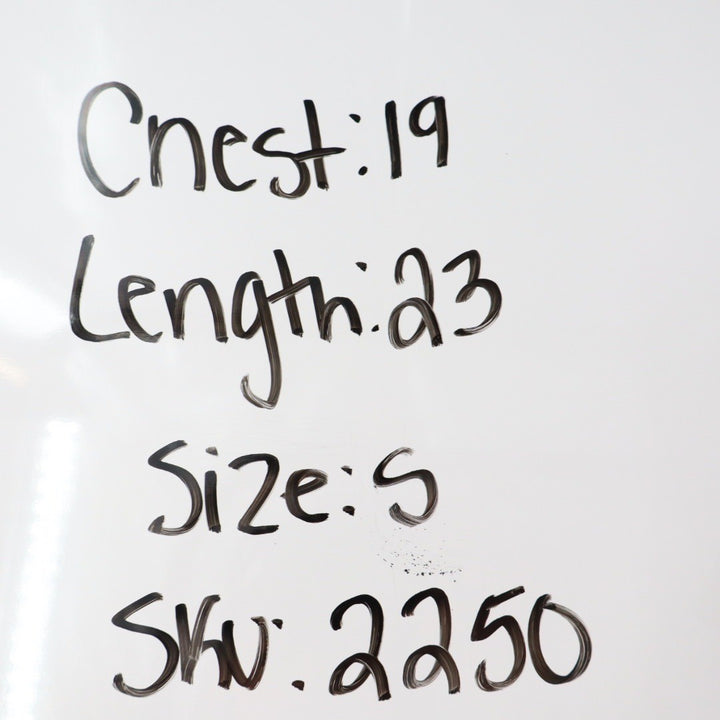 Chest: 19
Length: 23
Size: S
SKU: 2250